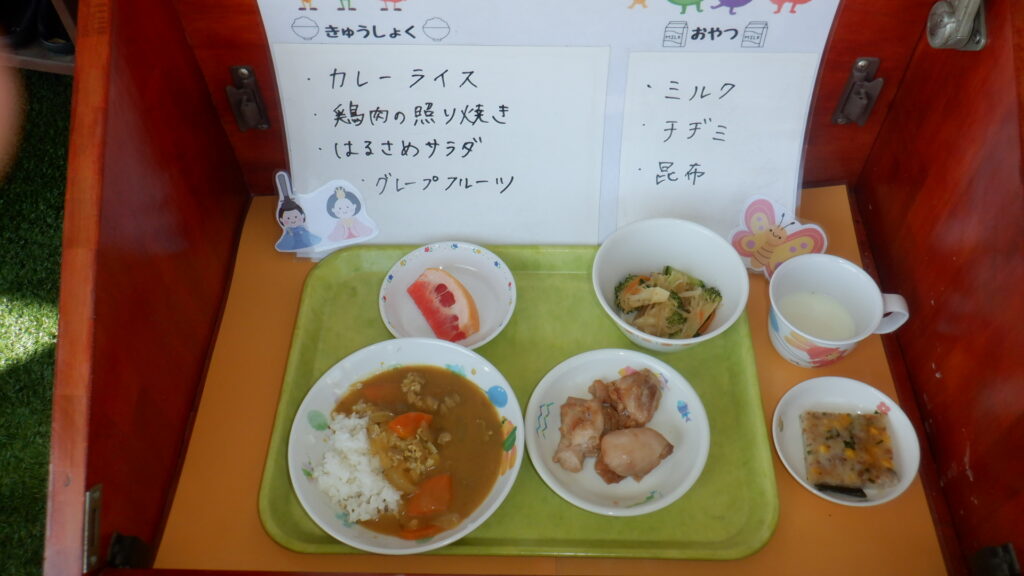 きゅうしょく
・カレーライス
・鶏肉の照り焼き
・はるさめサラダ
・グレープフルーツ
MILK おやつ MILK
・ミルク
・チヂミ
・昆布